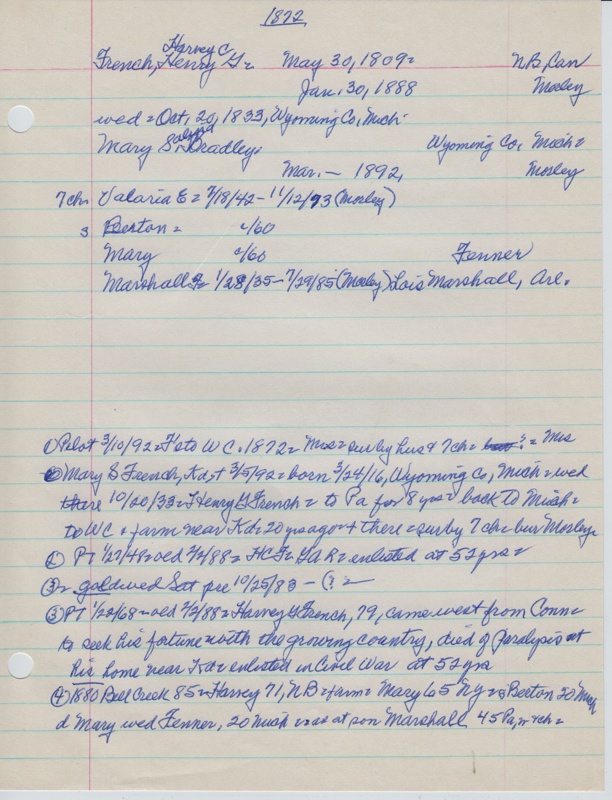 1872
Harvey C
French, Henry G = May 30, 1809 = NB, Can
Jan. 30, 1888 Mosley
wed = Oct. 20, 1833, Wyoming Co, Mich.
Mary S. Bradley = Wyoming Co, Mich =
Mar. — 1892, Mosley
7 ch = Valaria E = 7/18/42 - 11/12/93 (Mosley)
3 Berton = c/60
Mary c/60 Fenner
Marshall F = 1/28/35 - 7/29/85 (Mosley) Lois Marshall, Arl.
① Pilot 3/10/92 = F to W C. 1872 = Mrs = sur by hus & 7 ch = Mrs
Mary S French, Kd, + 3/5/92 = born 3/24/16, Wyoming Co, Mich = wed
there 10/20/33 = Henry G French = to Pa for 8 yrs = back to Mich =
to WC & farm near Kd = 20 yrs ago & there = sur by 7 ch = bur Mosley
② PT 1/27/48 = oed 2/2/88 = HCF = GAR = enlisted at 52 yrs =
③ = gold wed Sat pre 10/25/83 — (? =
③ PT 1/28/68 = oed 2/2/88 = Harvey G French, 79, came west from Conn =
to seek his fortune with the growing country, died of paralysis at
his home near Kd = enlisted in Civil War at 52 yrs
④ 1880 Bell Creek 85 = Harvey 71, NB = farm = Mary 65 NY = s Berton 20 Mich
d Mary wed Fenner, 20 Mich = at son Marshall 45 Pa, = 4 ch =